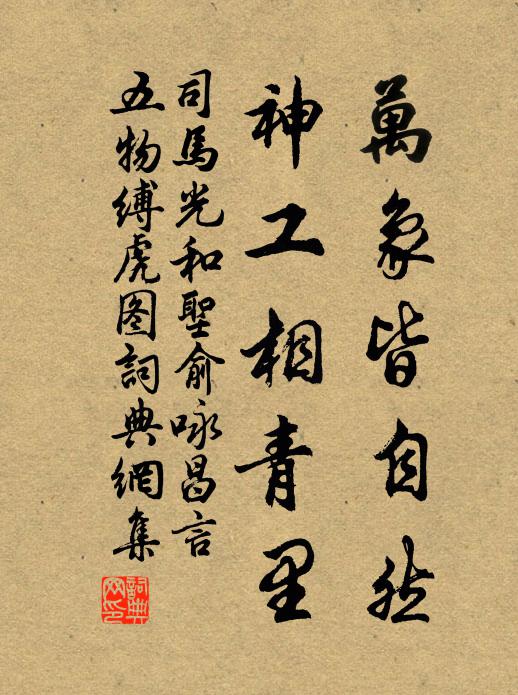 萬象皆自然
神工相青里
司馬光和聖俞咏昌言
五物縛虎图詞典網集
詞典
网印